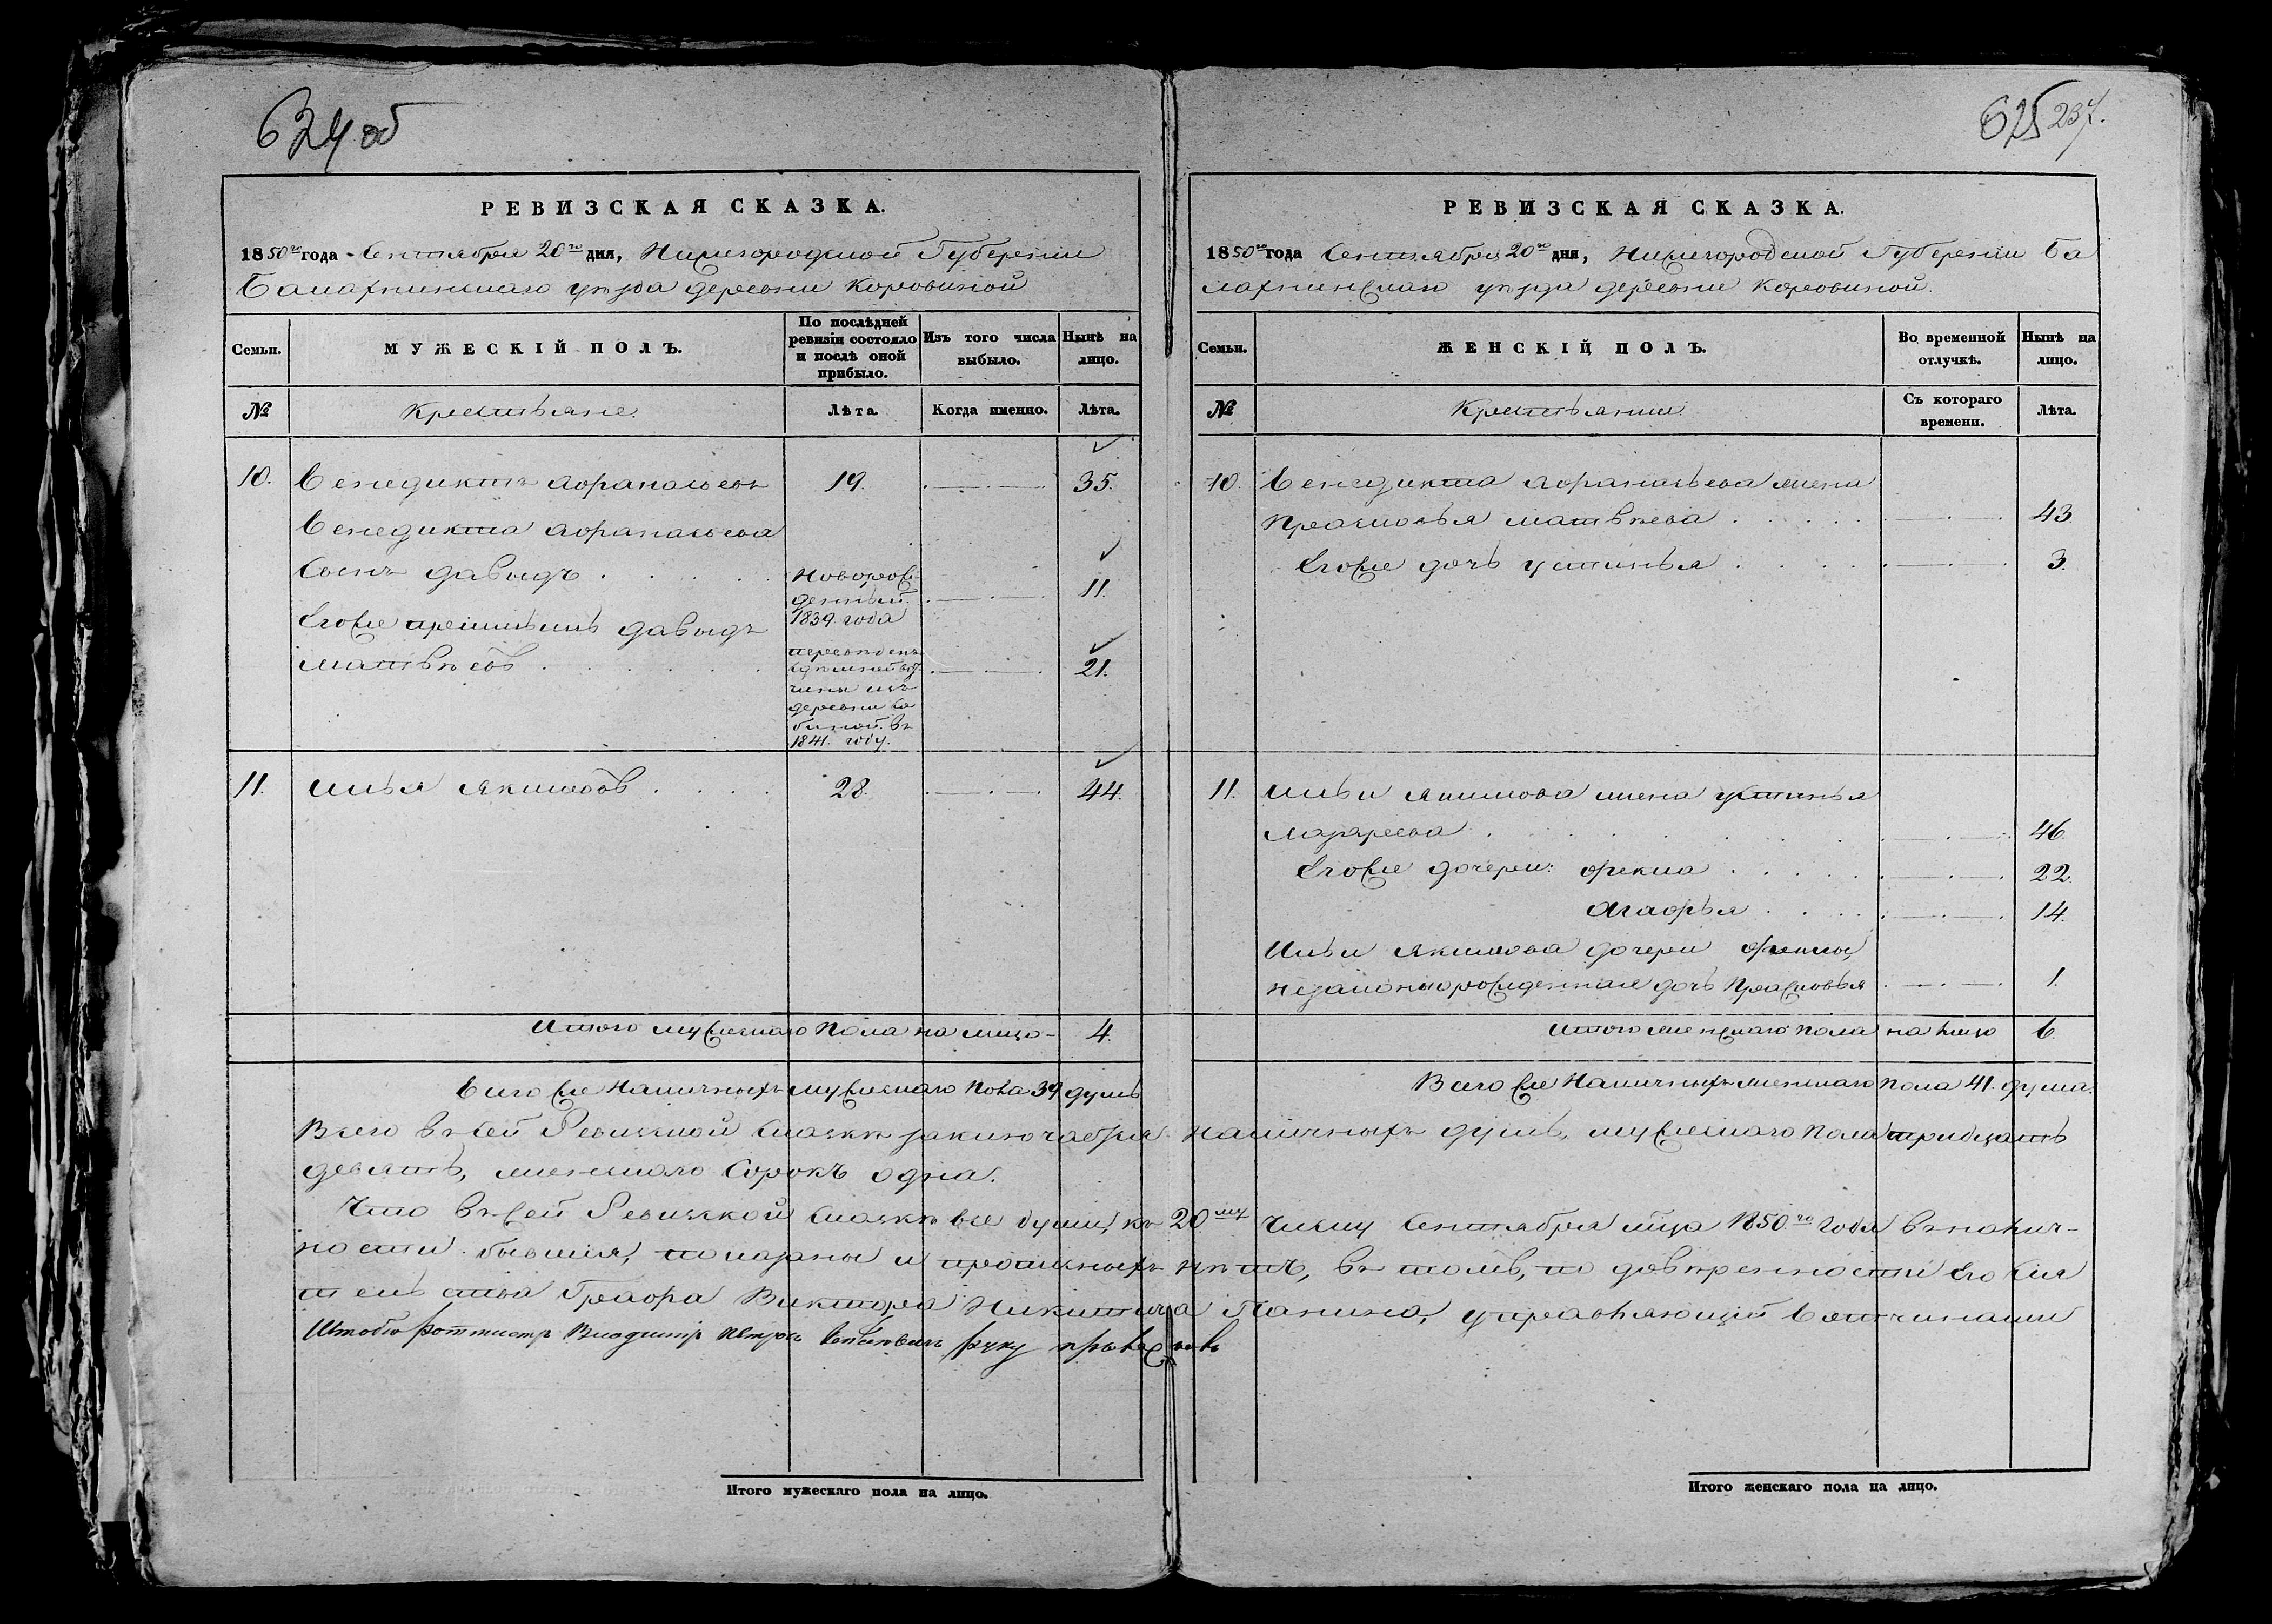 624 об
РЕВИЗСКАЯ СКАЗКА.
1850го года Сентября 20го дня, Нижегородской Губернии
Балахнинскаго уѣзда деревни Коровиной
Семьи.
МУЖЕСКІЙ ПОЛЪ.
По послѣдней ревизіи состояло и послѣ оной прибыло.
Изъ того числа выбыло.
Нынѣ на лицо.
№
Крестьяне.
Лѣта.
Когда именно.
Лѣта.
10. Венедиктъ Афанасьевъ 19. 35.
Венедикта Афанасьева
Сынъ Давыдъ новорожденный 1839 года 11.
Егоже приимышъ Давыдъ
Матвѣевъ переведенъ изъ деревни въ 1841. году. 21.
11. Илья Якимовъ 28. 44.
Итого мужескаго пола на лицо 4.
Всего же наличныхъ мужескаго пола 39 душъ
625 237.
РЕВИЗСКАЯ СКАЗКА.
1850го года Сентября 20го дня, Нижегородской Губерніи Ба
лахнинскаго уѣзда деревни Коровиной.
Семьи.
ЖЕНСКІЙ ПОЛЪ.
Во временной отлучкѣ.
Нынѣ на лицо.
№
Крестьянки
Съ котораго времени.
Лѣта.
10. Венедикта Афанасьева жена
Прасковья Матвѣева 43
Егоже дочь Устинья 3.
11. Ильи Якимова жена Устинья
Лазарева 46
Егоже дочери: Фекла 22.
Агафья 14.
Ильи Якимова дочери Феклы
незаконнорожденная дочь Прасковья 1.
Итого женскаго пола на лицо 6.
Всего же наличныхъ женскаго пола 41. душа.
Всего въ сей Ревизской Сказкѣ заключается наличныхъ душъ, мужескаго пола тридцать
девять, женскаго сорокъ одна.
Что въ сей Ревизской Сказкѣ все души, къ 20му числу Сентября мца 1850го года въ налич-
ности бывшія, показаны и прописныхъ нѣтъ, въ томъ, по довѣренности Его Сія
тельства Графа Виктора Никитича Панина, управляющій Вотчинами
Штабъ Ротмистръ Владимiръ Петровъ руку приложилъ
Итого мужескаго пола на лицо.
Итого женскаго пола на лицо.